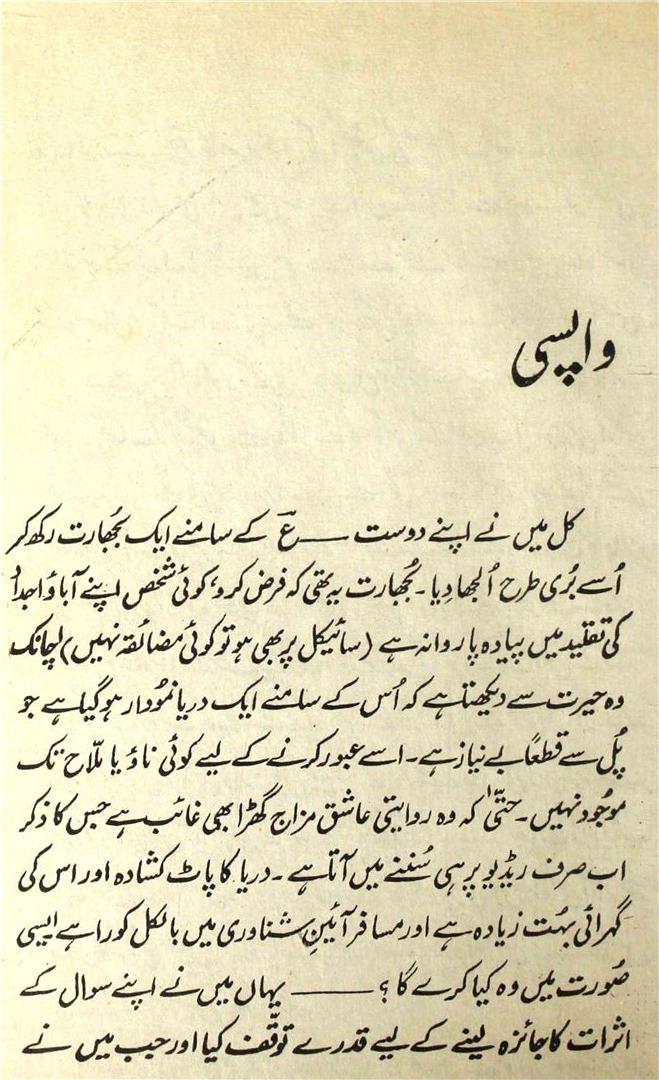 واپسی
کل میں نے اپنے دوست ــــ عؔ کے سامنے ایک بُجھارت رکھ کر
اُسے بُری طرح اُلجھا دِیا۔ بُجھارت یہ تھی کہ فرض کرو، کوئی شخص اپنے آباؤ اجداد
کی تقلید میں پیادہ پا روانہ ہے (سائیکل پر بھی ہو تو کوئی مضائقہ نہیں) اچانک
وہ حیرت سے دیکھتا ہے کہ اُس کے سامنے ایک دریا نمُودار ہو گیا ہے جو
پُل سے قطعاً بے نیاز ہے۔ اسے عبور کرنے کے لیے کوئی ناؤ یا ملّاح تک
موجُود نہیں۔ حتّیٰ کہ وہ روایتی عاشق مزاج گھڑا بھی غائب ہے جس کا ذکر
اب صرف ریڈیو پر ہی سُننے میں آتا ہے۔ دریا کا پاٹ کشادہ اور اس کی
گہرائی بہُت زیادہ ہے اور مسافر آئینِ شناوری میں بالکل کورا ہے ایسی
صُورت میں وہ کیا کرے گا؟ ــــــــ یہاں میں نے اپنے سوال کے
اثرات کا جائزہ لینے کے لیے قدرے توقّف کیا اور جب میں نے